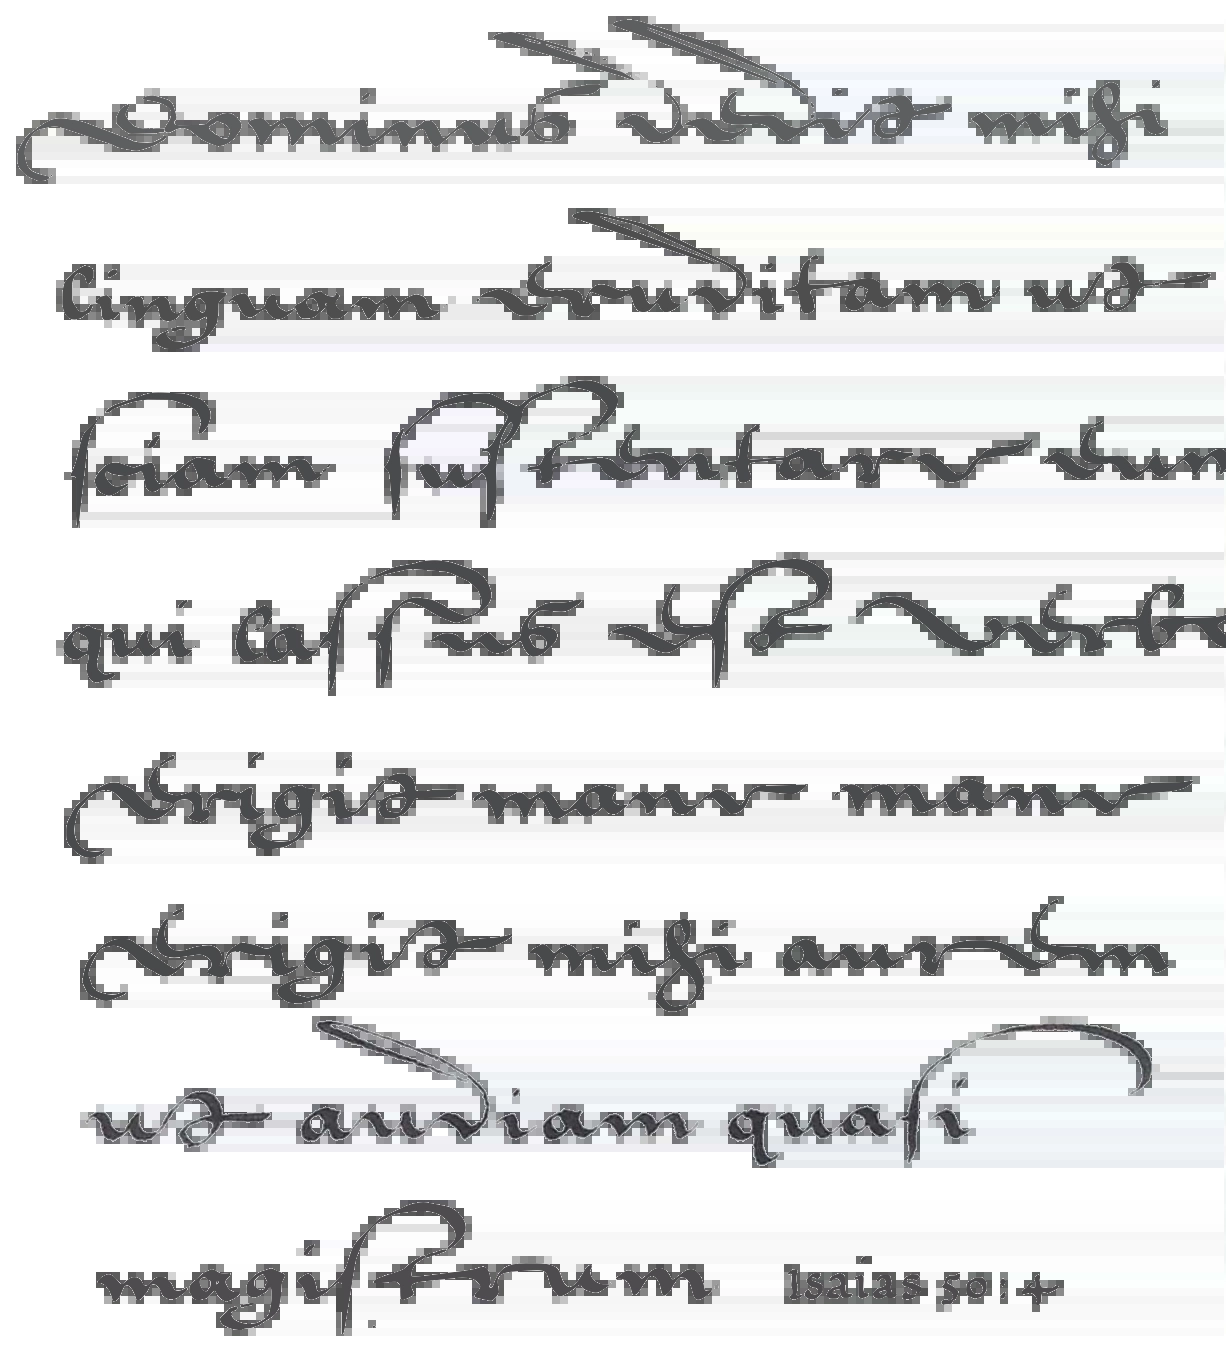 Dominus dedit mihi
linguam eruditam ut
sciam sustentare eum
qui lassus est verbo
erigit mane mane
erigit mihi aurem
ut audiam quasi
magistrum. Isaias 50:4